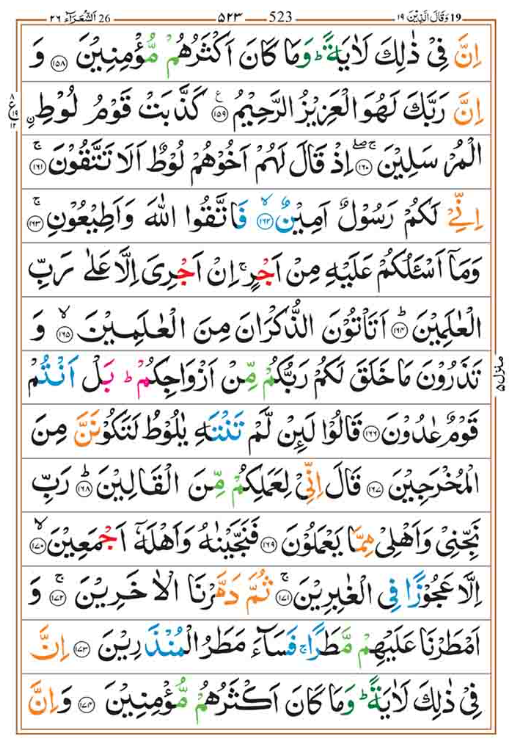 ١٩ وَقَالَ الَّذِيْنَ 19 523 ٥٢٣ 26 اَلشُّعَرَآء ٢٦
اِنَّ فِیْ ذٰلِكَ لَاٰیَةً ؕ وَمَا كَانَ اَكْثَرُهُمْ مُّؤْمِنِیْنَ ﴿۱۵۸﴾ وَ
اِنَّ رَبَّكَ لَهُوَ الْعَزِیْزُ الرَّحِیْمُ ﴿۱۵۹﴾ كَذَّبَتْ قَوْمُ لُوْطِ ࣙ
الْمُرْسَلِیْنَ ﴿۱۶۰﴾ اِذْ قَالَ لَهُمْ اَخُوْهُمْ لُوْطٌ اَلَا تَتَّقُوْنَ ﴿۱۶۱﴾
اِنِّیْ لَكُمْ رَسُوْلٌ اَمِیْنٌ ﴿۱۶۲﴾ فَاتَّقُوا اللّٰهَ وَاَطِیْعُوْنِ ﴿۱۶۳﴾
وَمَاۤ اَسْـَٔلُكُمْ عَلَیْهِ مِنْ اَجْرٍ ۚ اِنْ اَجْرِیَ اِلَّا عَلٰی رَبِّ
الْعٰلَمِیْنَ ﴿۱۶۴﴾ اَتَاْتُوْنَ الذُّكْرَانَ مِنَ الْعٰلَمِیْنَ ﴿۱۶۵﴾ وَ
تَذَرُوْنَ مَا خَلَقَ لَكُمْ رَبُّكُمْ مِّنْ اَزْوَاجِكُمْ ؕ بَلْ اَنْتُمْ
قَوْمٌ عٰدُوْنَ ﴿۱۶۶﴾ قَالُوْا لَىِٕنْ لَّمْ تَنْتَهِ یٰلُوْطُ لَتَكُوْنَنَّ مِنَ
الْمُخْرَجِیْنَ ﴿۱۶۷﴾ قَالَ اِنِّیْ لِعَمَلِكُمْ مِّنَ الْقَالِیْنَ ﴿۱۶۸﴾ رَبِّ
نَجِّنِیْ وَاَهْلِیْ مِمَّا یَعْمَلُوْنَ ﴿۱۶۹﴾ فَنَجَّیْنٰهُ وَاَهْلَهٗۤ اَجْمَعِیْنَ ﴿۱۷۰﴾
اِلَّا عَجُوْزًا فِی الْغٰبِرِیْنَ ﴿۱۷۱﴾ ثُمَّ دَمَّرْنَا الْاٰخَرِیْنَ ﴿۱۷۲﴾ وَ
اَمْطَرْنَا عَلَیْهِمْ مَّطَرًا ۚ فَسَآءَ مَطَرُ الْمُنْذَرِیْنَ ﴿۱۷۳﴾ اِنَّ
فِیْ ذٰلِكَ لَاٰیَةً ؕ وَمَا كَانَ اَكْثَرُهُمْ مُّؤْمِنِیْنَ ﴿۱۷۴﴾ وَاِنَّ
منزل ۵